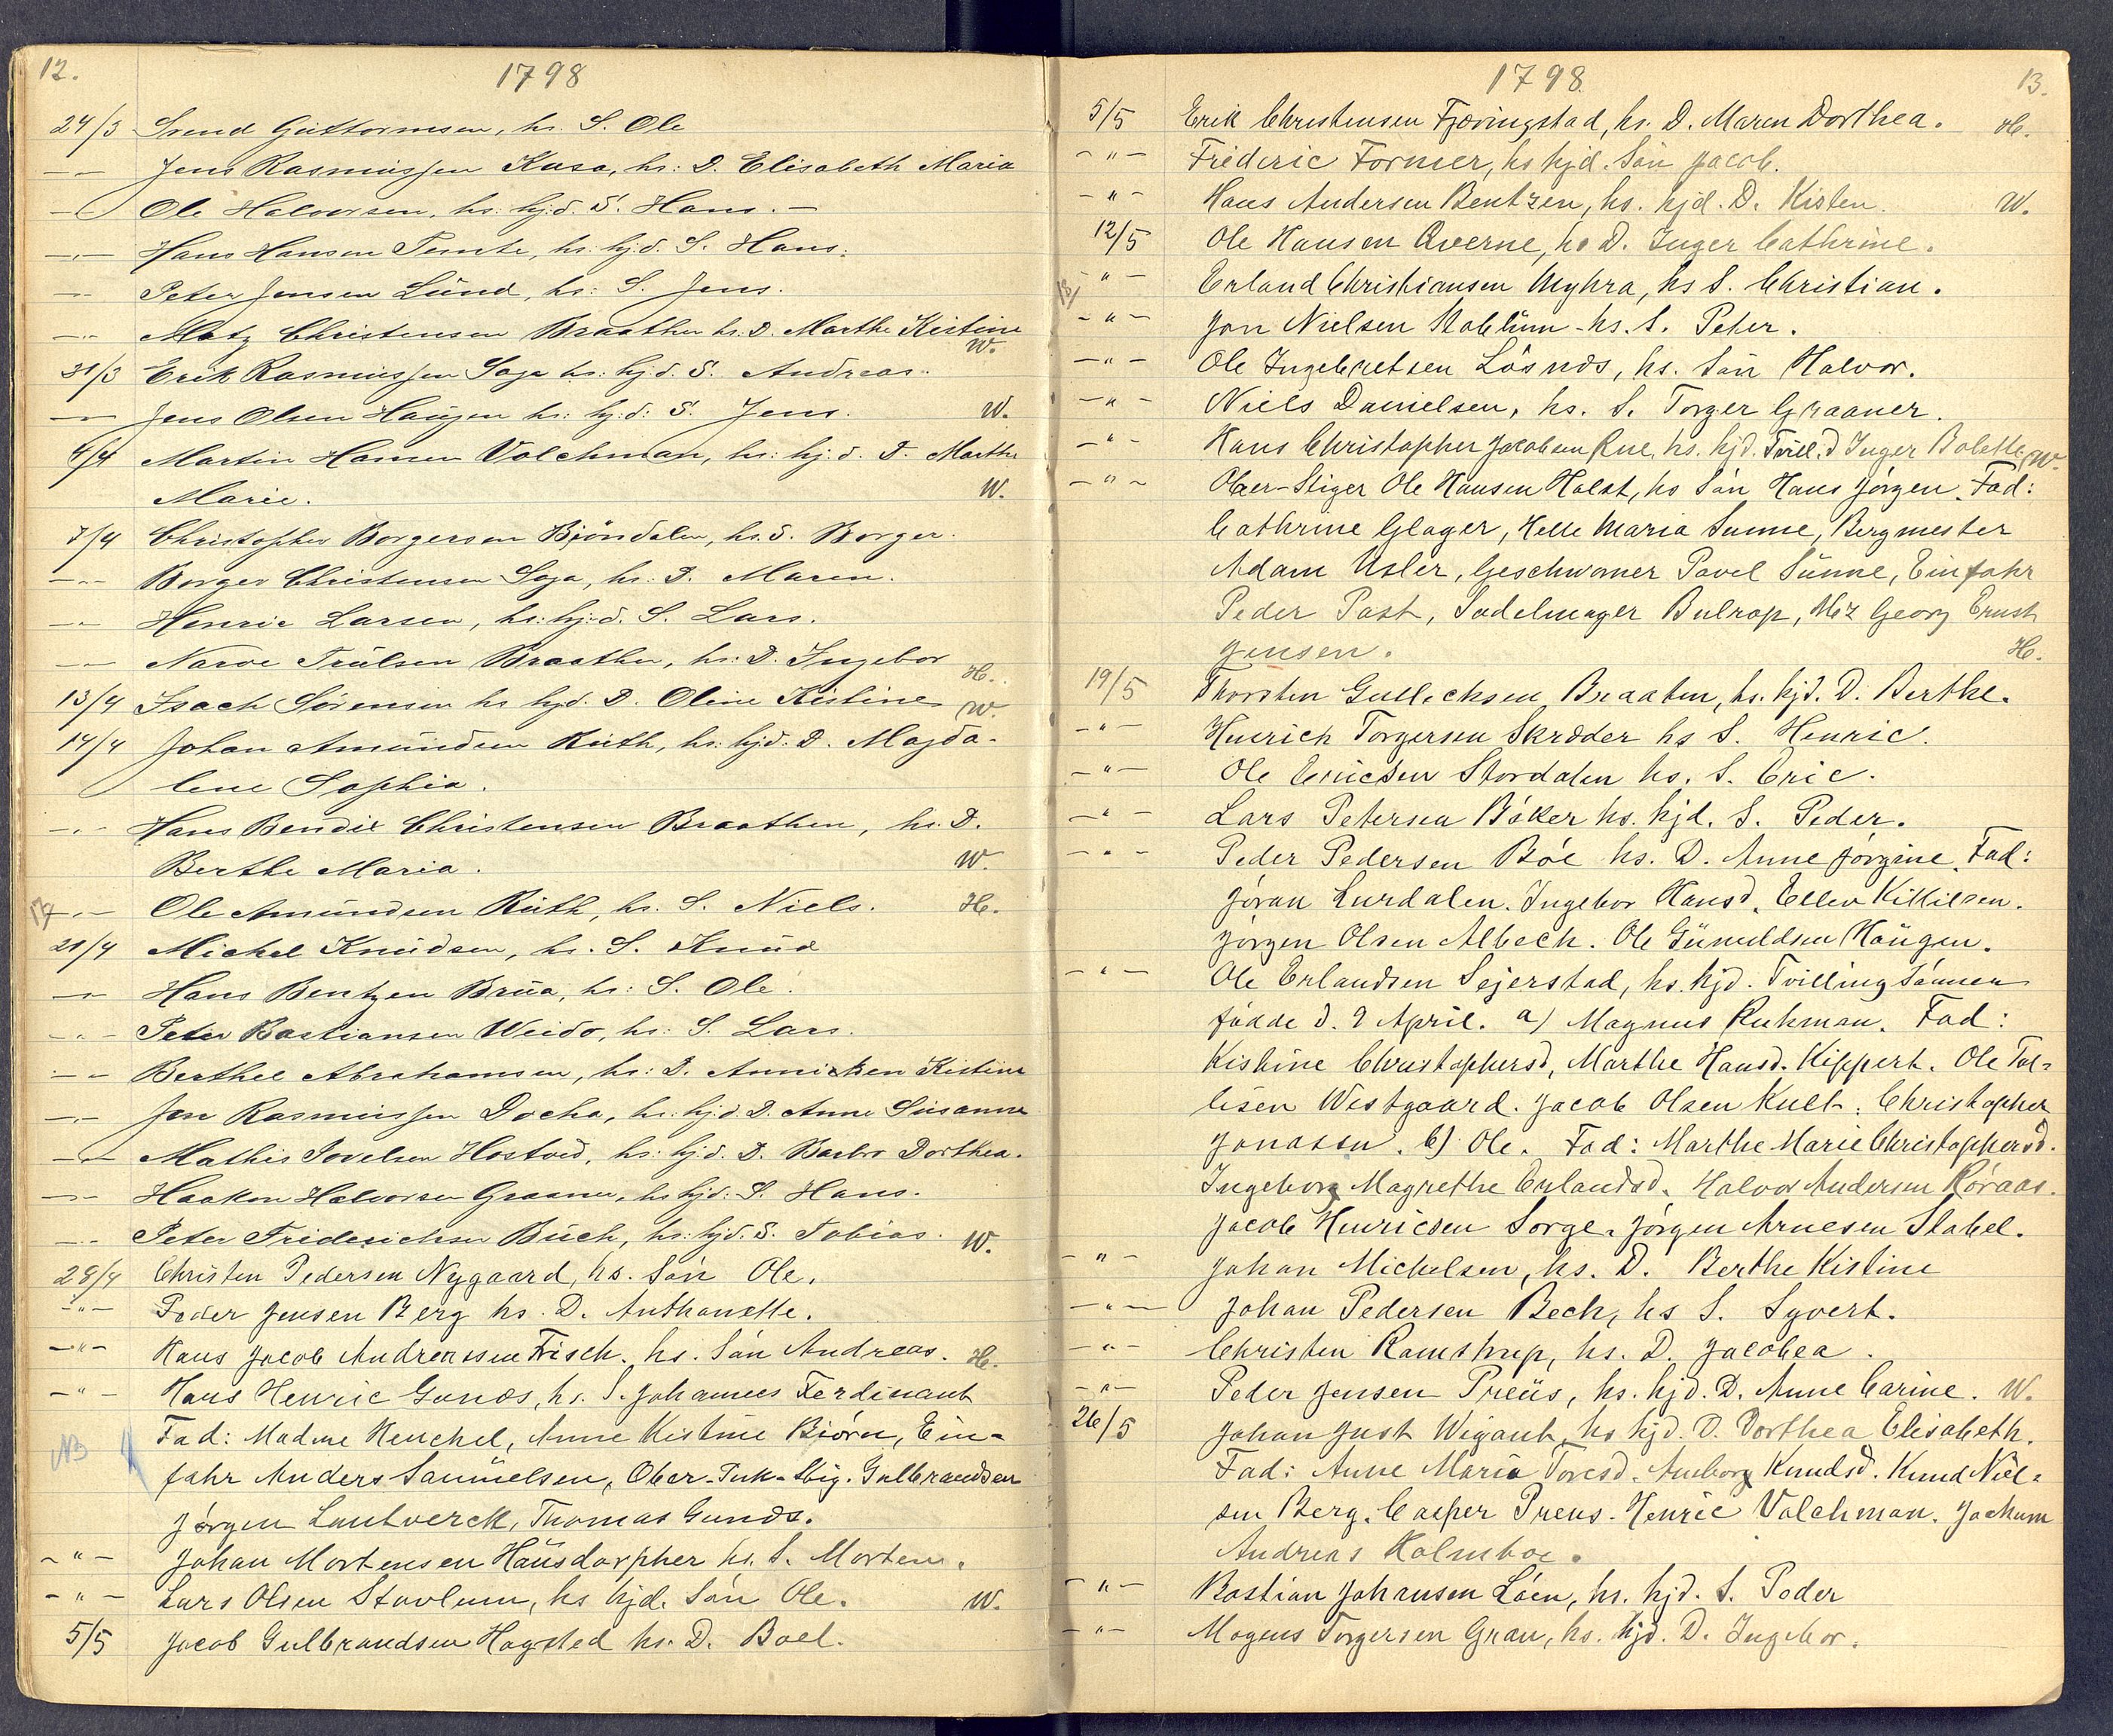 12.
1798
24/3 Svend Guttormsen, hs. S. Ole
-"- Jens Rasmussen Kasa, hs: D. Elisabeth Maria
-"- Ole Halvorsen, hs: hj:d. S. Hans. -
-"- Hans Hansen Temte, hs: hj:d. S. Hans.
-"- Peter Jensen Lünd, hs: S. Jens.
-"- Matz Christensen Braathen hs: D. Marthe Kistine
W.
31/3 Erik Rasmussen Saga hs: hj:d. S. Andreas.
-"- Jens Olsen Haügen hs: hj:d: S. Jens. W.
4/4 Martin Hansen Volchman, hs: hj:d. D. Marthe
Marie. W.
7/4 Christopher Borgersen Bjöndalen, hs. S. Borger.
-"- Borger Christensen Saga, hs: D. Maren.
-"- Henric Larsen, hs: hj:d. S. Lars.
-"- Narve Trülsen Braathen, hs: D. Ingebor H.
13/4 Isach Sörensen hs hjd. D. Oline Kistine W.
14/4 Johan Amündsen Rüth, hs: hjd: D. Magda-
lene Sophia.
-"- Hans Bendix Christensen Braathen, hs. D.
Berthe Maria. W.
-"- Ole Amündsen Rüth, hs. S. Niels. H.
21/4 Michel Knüdsen, hs. S. Knüd
-"- Hans Bentzen Brüa, hs: S. Ole.
-"- Peter Bastiansen Weido, hs: S. Lars.
-"- Berthel Abrahamsen, hs: D. Annicken Kistine
-"- Jon Rasmussen Docka, hs: hj:d D. Anne Süsanne
-"- Mathis Jovelsen Hostved, hs: hj:d. D. Barbro Dorthea.
-"- Haakon Halvorsen Graaner, hs hjd: S. Hans.
-"- Peter Friderichsen Büch, hs: hjd. S. Tobias. W.
28/4 Christen Pedersen Nygaard, hs. Sön Ole.
-"- Peder Jensen Berg hs. D. Anthonette.
-"- Hans Jacob Andreassen Frisch. hs. Sön Andreas. H.
-"- Hans Henric Gunds, hs. S. Johannes Ferdinant
NB Fad: Madme Henchel, Anne Kistine Biörn, Ein-
fahr Anders Samüelsen, Ober-Puk-Stig. Gulbrandsen
Jörgen Lautverck, Thomas Gunds.
-"- Johan Mortensen Haüsdorpher hs. S. Morten.
-"- Lars Olsen Stavlum, hs hjd. Sön Ole. W.
5/5 Jacob Gulbrandsen Hagsted hs. D. Boel.
1798.
13.
5/5 Erik Christensen Fjæringstad, hs. D. Maren Dorthea. H.
-"- Frideric Former, hs hjd. Sön Jacob.
-"- Hans Andersen Bentzen, hs. hjd. D. Kisten. W.
12/5 Ole Hansen Qverne, hs D. Inger Cathrine.
-"- Erland Christiansen Myhra, hs S. Christian.
-"- Jon Nielsen Stablüm - hs. S. Peter.
-"- Ole Ingebretsen Lösnæs, hs. Sön Halvor.
-"- Niels Danielsen, hs. S. Torger Graaner.
-"- Hans Christopher Jacobsen Rue, hs. hjd. Tvill. D Inger Bolette W.
-"- Ober-Stiger Ole Hansen Holst, hs Sön Hans Jörgen. Fad:
Cathrine Glager, Helle Maria Sunne, Bergmester
Adam Usler, Geschworner Povel Sünne, Einfahr
Peder Post, Sadelmager Bulrop, Mr Georg Ernst
Jensen. H.
19/5 Thorsten Gullichsen Braaten, hs. hjd. D. Berthe.
-"- Henrich Torgersen Skrædder hs S. Henric.
-"- Ole Ericsen Stordalen hs. S. Eric.
-"- Lars Petersen Böker hs. hjd. S. Peder.
-"- Peder Pedersen Böe hs. D. Anne Jörgine. Fad:
Jöran Lurdalen. Ingebor Hansd, Ellev Kittilsen.
Jörgen Olsen Albech. Ole Günuldsen Haügen.
-"- Ole Erlandsen Sejerstad, hs. hjd. Tvilling Sönner
födde d. 9 April. a) Magnus Ruhman. Fad:
Kistine Christophersd, Marthe Hansd. Kippert. Ole Tol-
lisen Westgaard. Jacob Olsen Kult. Christopher
Jonassn. b) Ole. Fad: Marthe Marie Christophersd.
Ingeborg Magrethe Erlandsd. Halvor Andersen Röraas.
Jacob Henricsen Sorge. Jörgen Arnesen Stabel.
-"- Johan Michelsen, hs. D. Berthe Kistine
-"- Johan Pedersen Bech, hs S. Syvert.
-"- Christen Ramstrup, hs. D. Jacobea.
-"- Peder Jensen Preüs, hs. hjd. D. Anne Carine. W.
26/5 Johan Just Wigant, hs hjd. D. Dorthea Elisabeth.
Fad: Anne Maria Toresd. Anborg Knudsd. Knud Niel-
sen Berg. Casper Preus. Henric Volchman. Jochum
Andreas Holmboe.
-"- Bastian Johansen Löen, hs. hjd. S. Peder
-"- Mogens Torgersen Grau, hs. hjd. D. Ingebor.